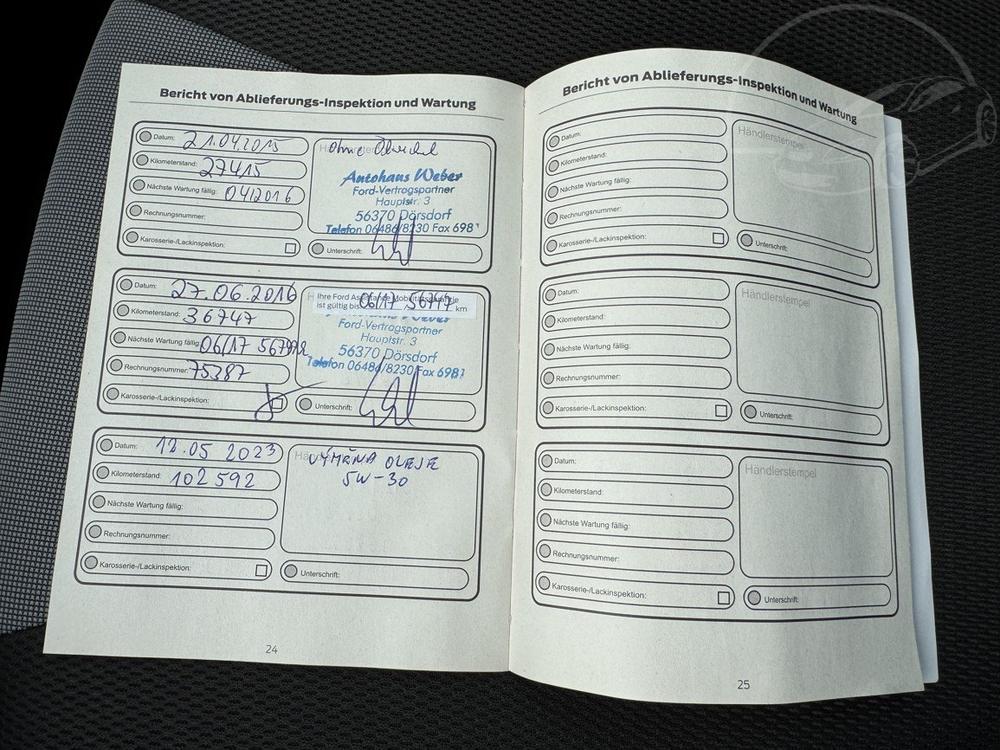 Bericht von Ablieferungs-Inspektion und Wartung
Datum: 21.04.2015
Kilometerstand: 27415
Nächste Wartung fällig: 04/2016
Rechnungsnummer:
Karosserie-/Lackinspektion:
Ohne
Autohaus Weber
Ford-Vertragspartner
Hauptstr. 3
56370 Dörsdorf
Telefon 06486/8230 Fax 6981
Unterschrift:
Datum: 27.06.2016
Kilometerstand: 36747
Nächste Wartung fällig: 06/17
Rechnungsnummer: 75387
Karosserie-/Lackinspektion:
Ihre Ford Assistance Mobilitätsgarantie
ist gültig bis 06/17 56747 km
Ford-Vertragspartner
Hauptstr. 3
56370 Dörsdorf
Telefon 06486/8230 Fax 6981
Unterschrift:
Datum: 12.05 2023
Kilometerstand: 102 592
Nächste Wartung fällig:
Rechnungsnummer:
Karosserie-/Lackinspektion:
VÝMĚNA OLEJE
5W-30
Unterschrift:
24
Bericht von Ablieferungs-Inspektion und Wartung
Datum:
Kilometerstand:
Nächste Wartung fällig:
Rechnungsnummer:
Karosserie-/Lackinspektion:
Händlerstempel
Unterschrift:
Datum:
Kilometerstand:
Nächste Wartung fällig:
Rechnungsnummer:
Karosserie-/Lackinspektion:
Händlerstempel
Unterschrift:
Datum:
Kilometerstand:
Nächste Wartung fällig:
Rechnungsnummer:
Karosserie-/Lackinspektion:
Händlerstempel
Unterschrift:
25